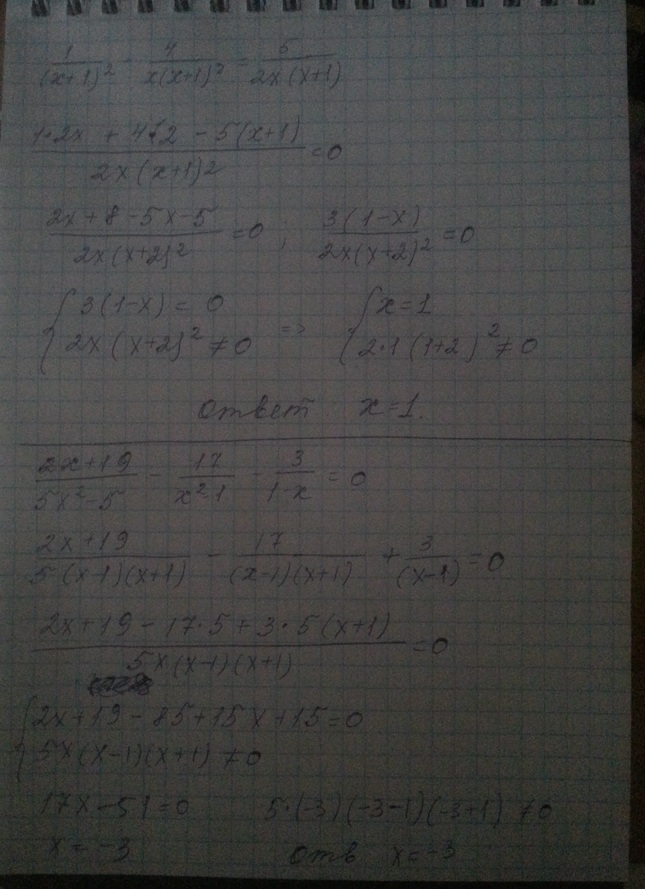 1/(x+1)² - 4/(x(x+1)²) = 5/(2x(x+1))
(1·2x + 4·2 - 5(x+1))/(2x(x+1)²) = 0
(2x+8-5x-5)/(2x(x+2)²) = 0 ; 3(1-x)/(2x(x+2)²) = 0
{ 3(1-x) = 0 => { x=1
2x(x+2)² ≠ 0 2·1(1+2)² ≠ 0
ответ x=1.
(2x+19)/(5x²-5) - 17/(x²-1) - 3/(1-x) = 0
(2x+19)/(5(x-1)(x+1)) - 17/((x-1)(x+1)) + 3/(x-1) = 0
(2x+19-17·5+3·5(x+1))/(5x(x-1)(x+1)) = 0
{ 2x+19-85+15x+15=0
5x(x-1)(x+1) ≠0
17x-51=0 5·(-3)(-3-1)(-3+1) ≠0
x=-3 отв x=-3